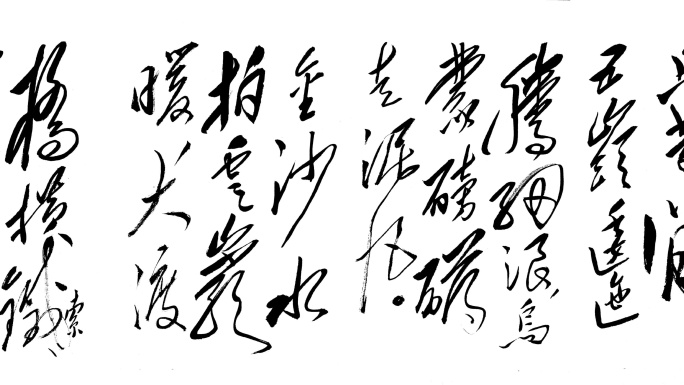 五嶺逶迤
騰細浪烏
蒙磅礴
走泥丸.
金沙水
拍雲巖
暖大渡
橋橫鐵索